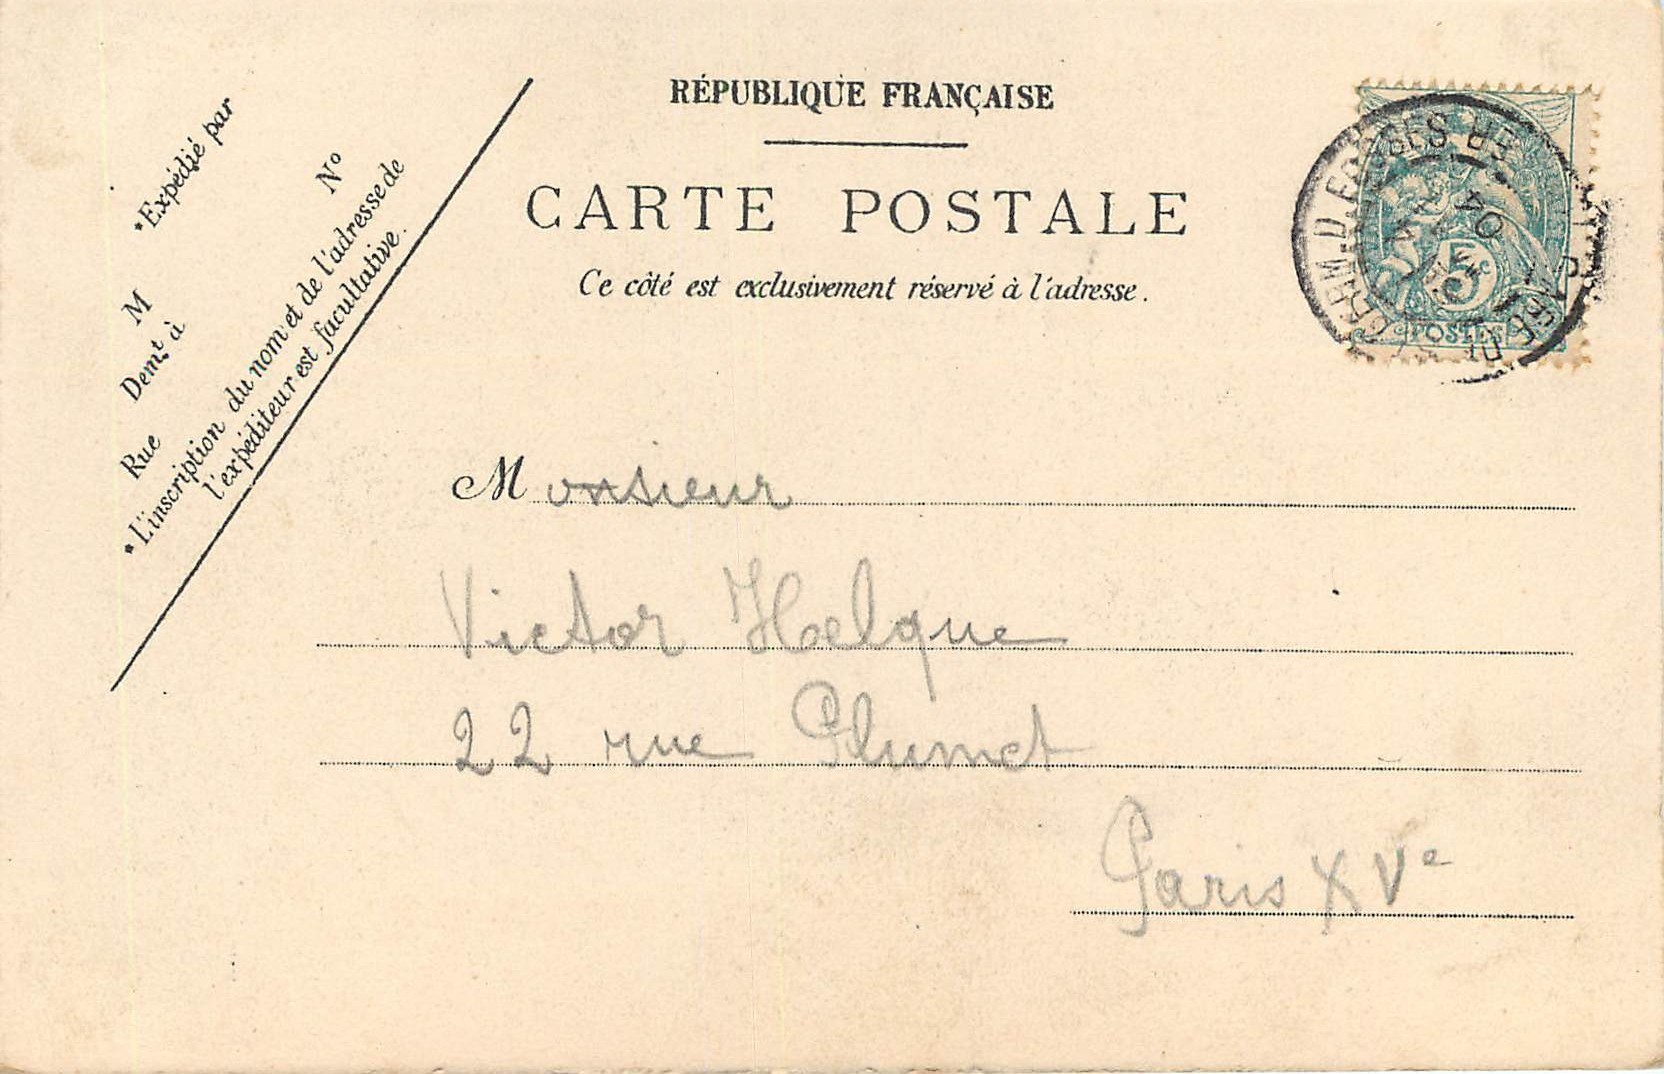 RÉPUBLIQUE FRANÇAISE
CARTE POSTALE
Ce côté est exclusivement réservé à l'adresse.
*Expédié par
M N°
Dem.t à
Rue
*L'inscription du nom et de l'adresse de
l'expéditeur est facultative.
5c
POSTES
04
Monsieur
Victor Helque
22 rue Plumet
Paris XVe